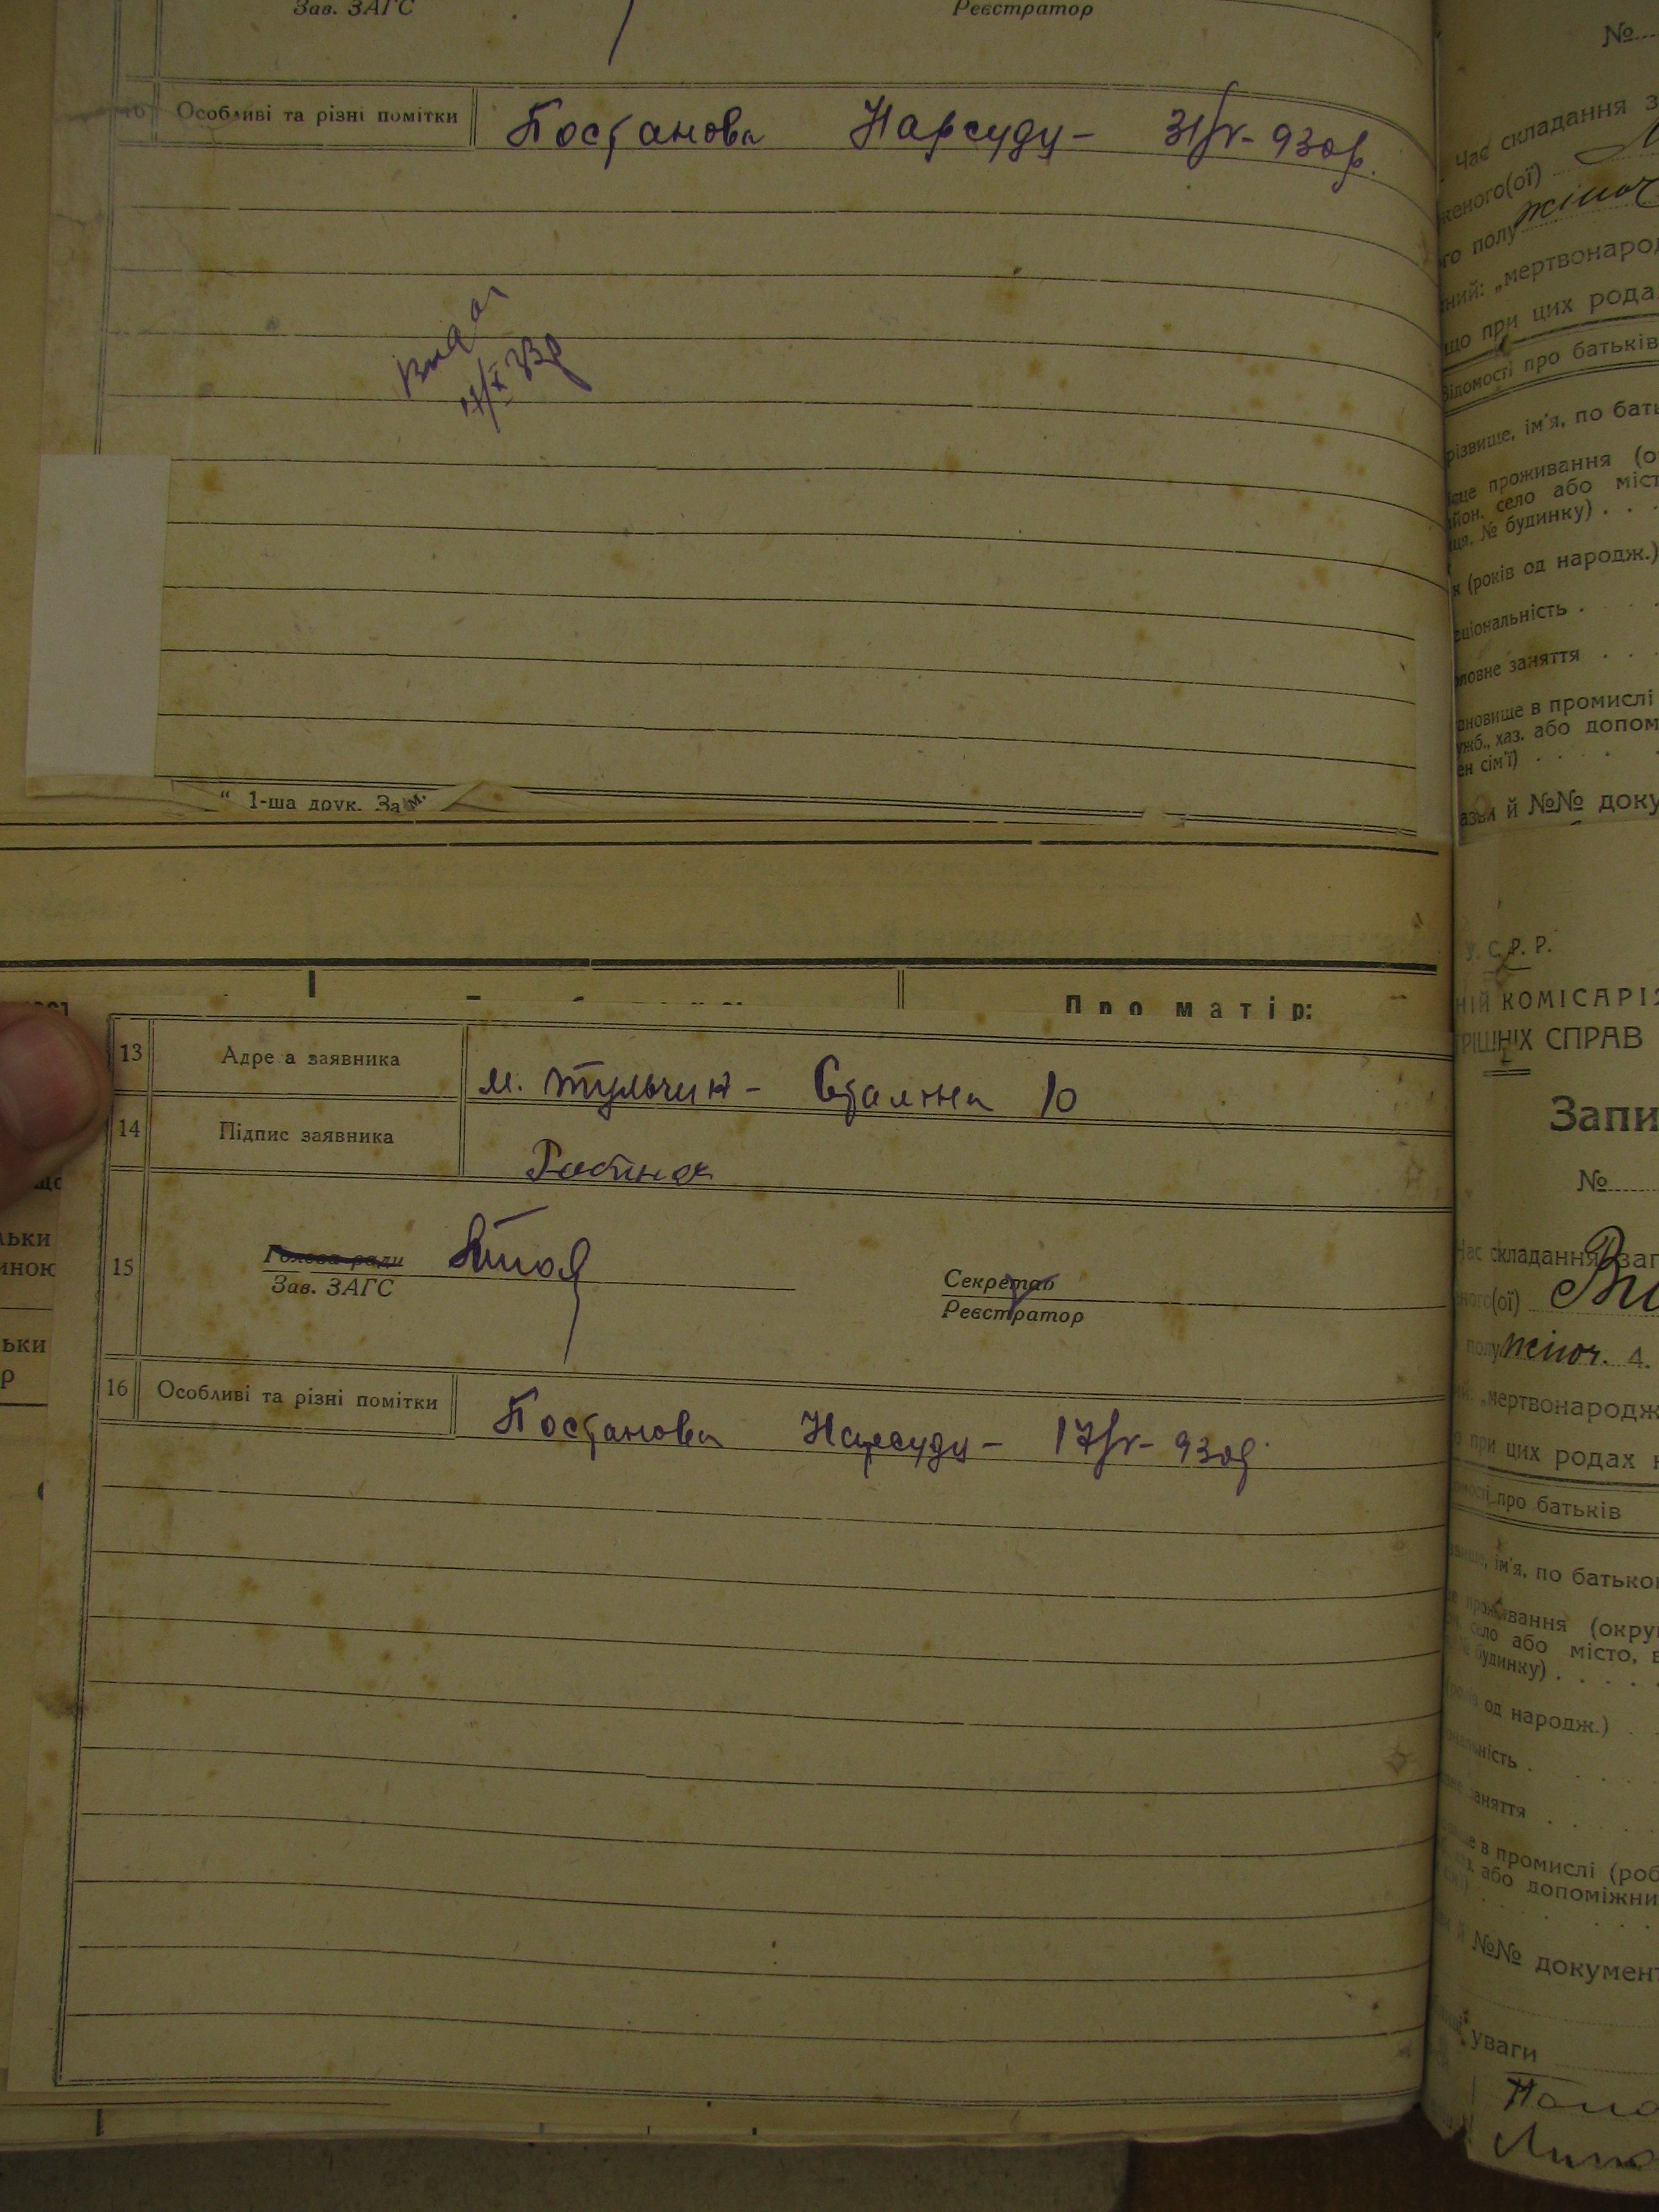 Зав. ЗАГС
Реєстратор
Особливі та різні помітки
Постанова Нарсуду - 31/V - 930р.
Видан
33р
" 1-ша друк. Зам.
Про матір:
13 Адре а заявника
м. Тульчин - Сталіна 10
14 Підпис заявника
15 Голова ради
Зав. ЗАГС
Секретар
Реєстратор
16 Особливі та різні помітки
Постанова Нарсуду - 17/V - 930р.
що
льки
иною
ьки
р
№
Час складання з
женого(ої)
го полу жіноч
ний: „мертвонарод
що при цих рода
Відомості про батьків
різвище, ім'я, по бать
ісце проживання (о
йон, село або міст
ця, № будинку) . . .
к (років од народж.)
ціональність .
ловне заняття . . .
ановище в промислі
ужб., хаз. або допом
ен сім'ї) . . .
азви й №№ доку
У. С. Р. Р.
НІЙ КОМІСАРІЯ
ТРІШНІХ СПРАВ
Запи
№
Час складання заг
ного(ої)
полу жіноч. 4.
ий: „мертвонародж
о при цих родах н
мості про батьків
звище, ім'я, по батько
це проживання (окру
село або місто, в
будинку) . . . . .
років од народж.) .
ональність . .
вне заняття . .
ще в промислі (роб
хаз. або допоміжни
й №№ документ
уваги